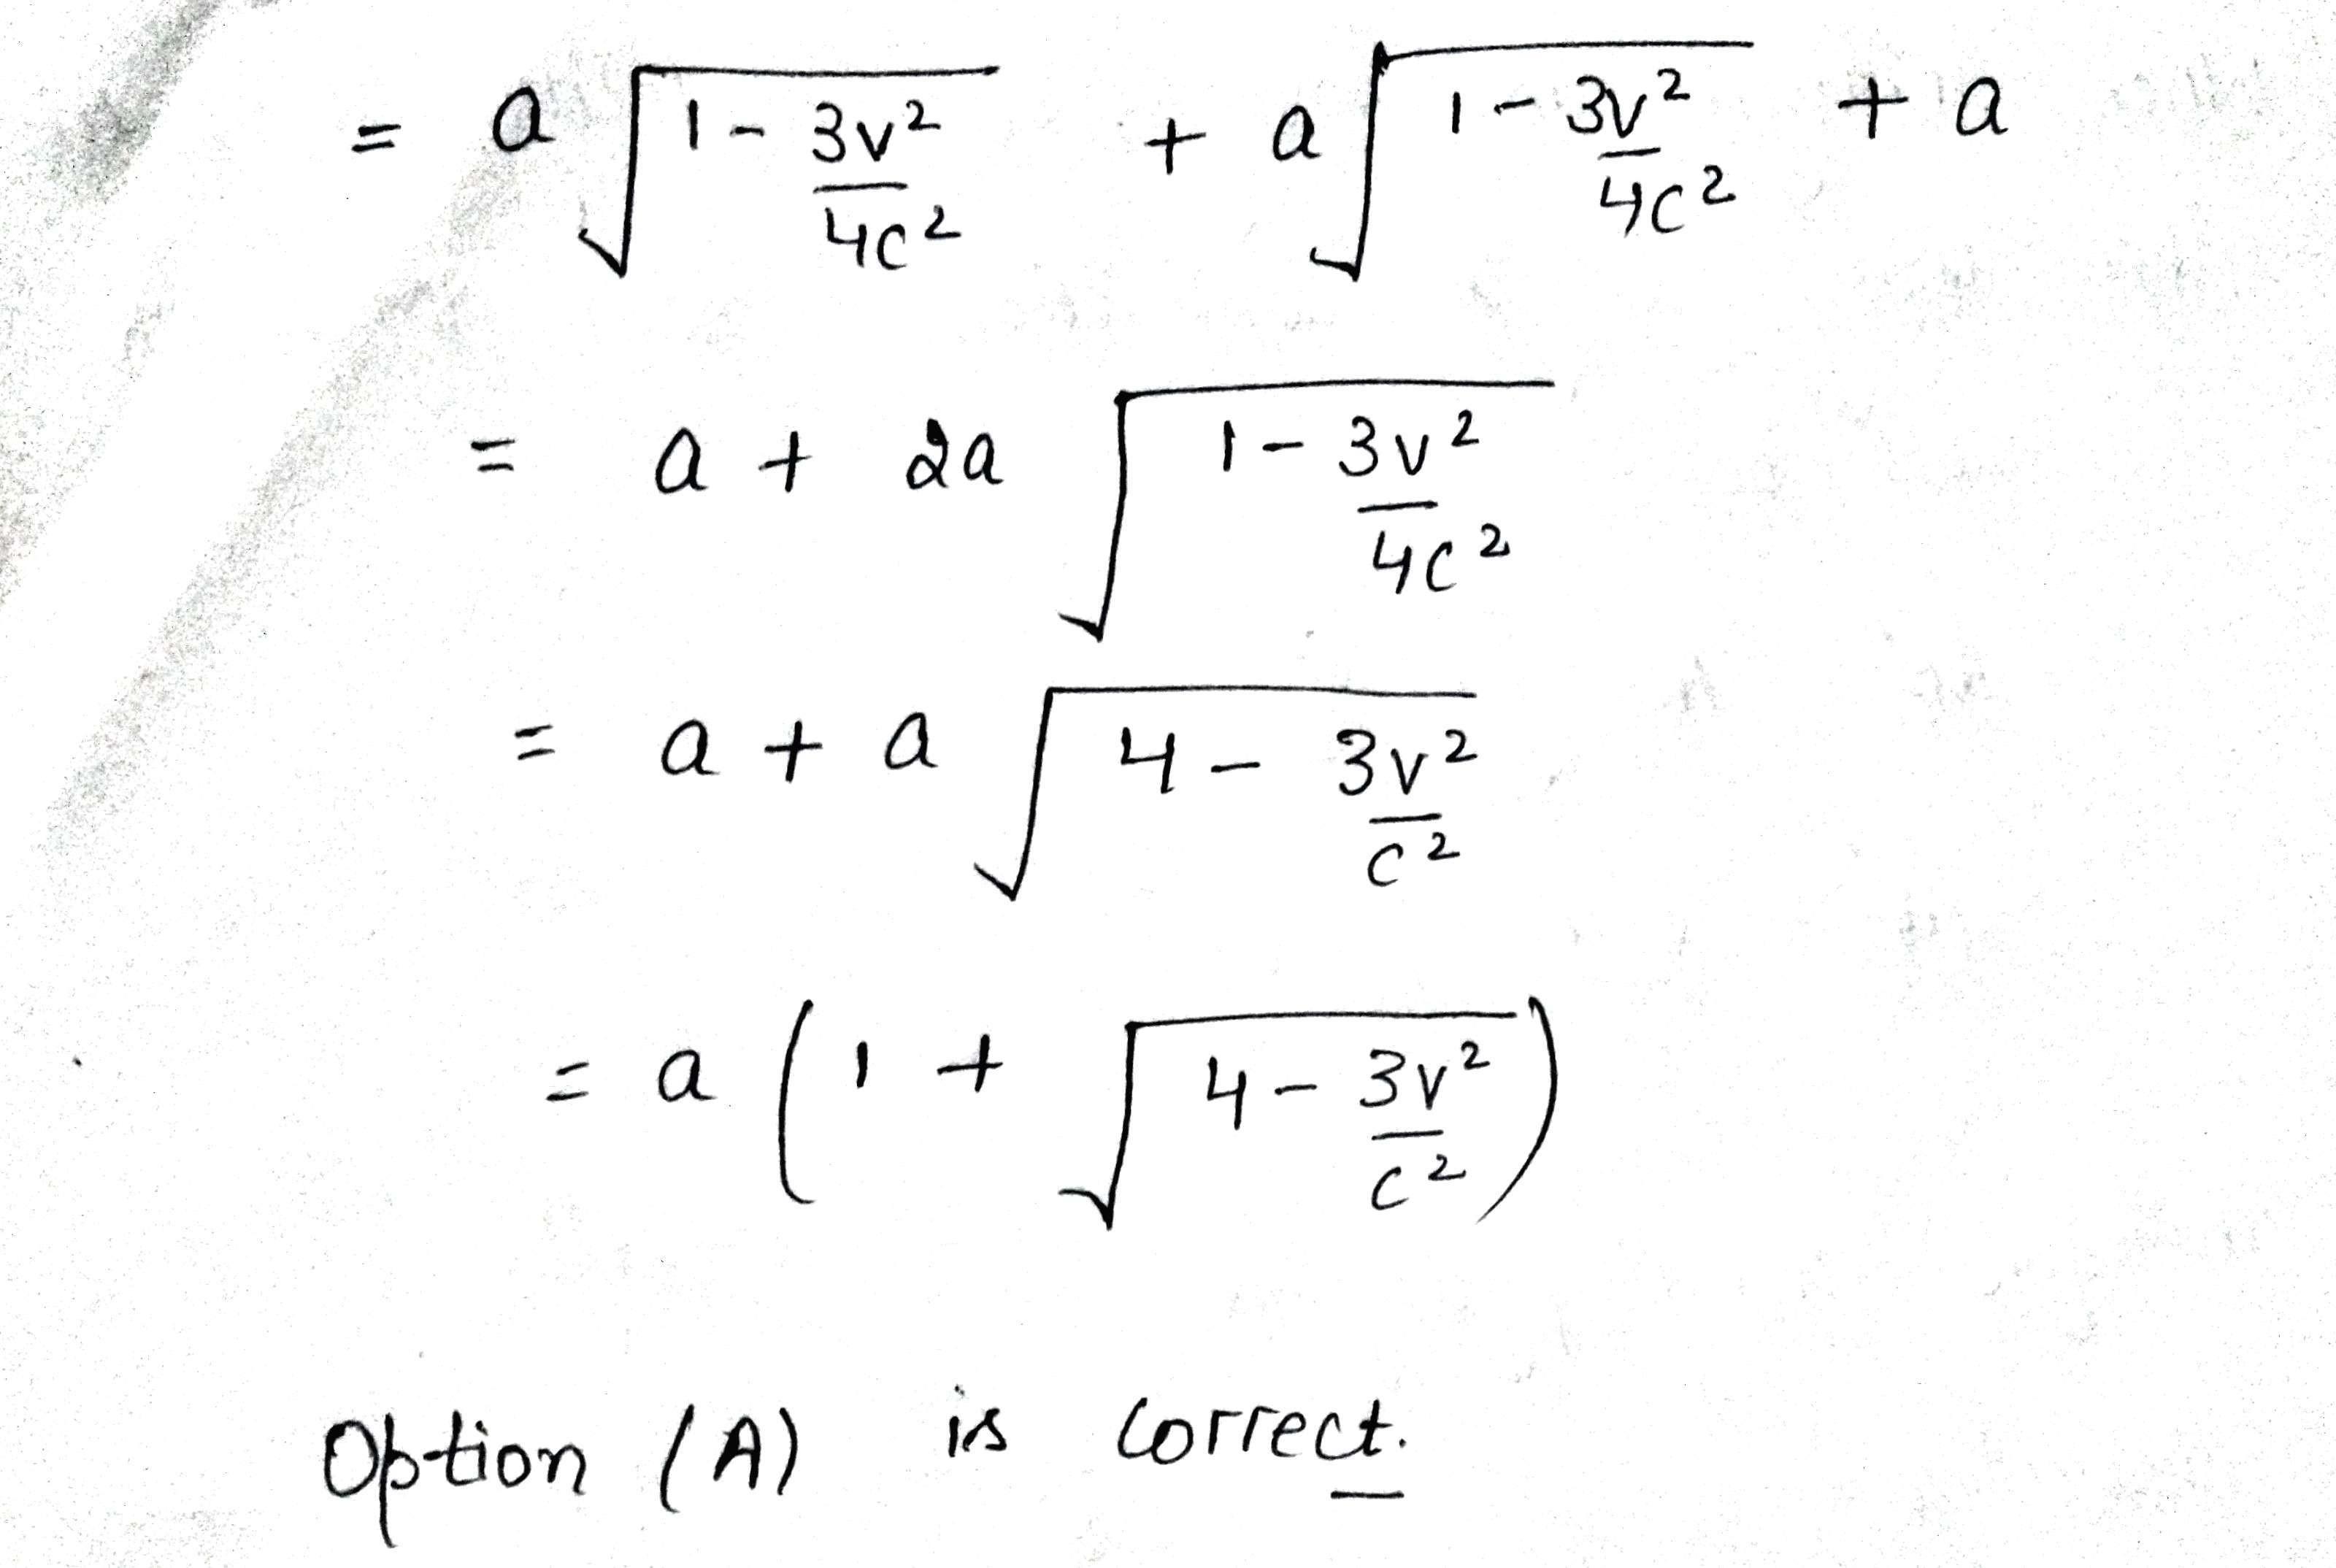 = a √(1 - 3v²/4c²) + a √(1 - 3v²/4c²) + a
= a + 2a √(1 - 3v²/4c²)
= a + a √(4 - 3v²/c²)
= a (1 + √(4 - 3v²/c²))
Option (A) is correct.